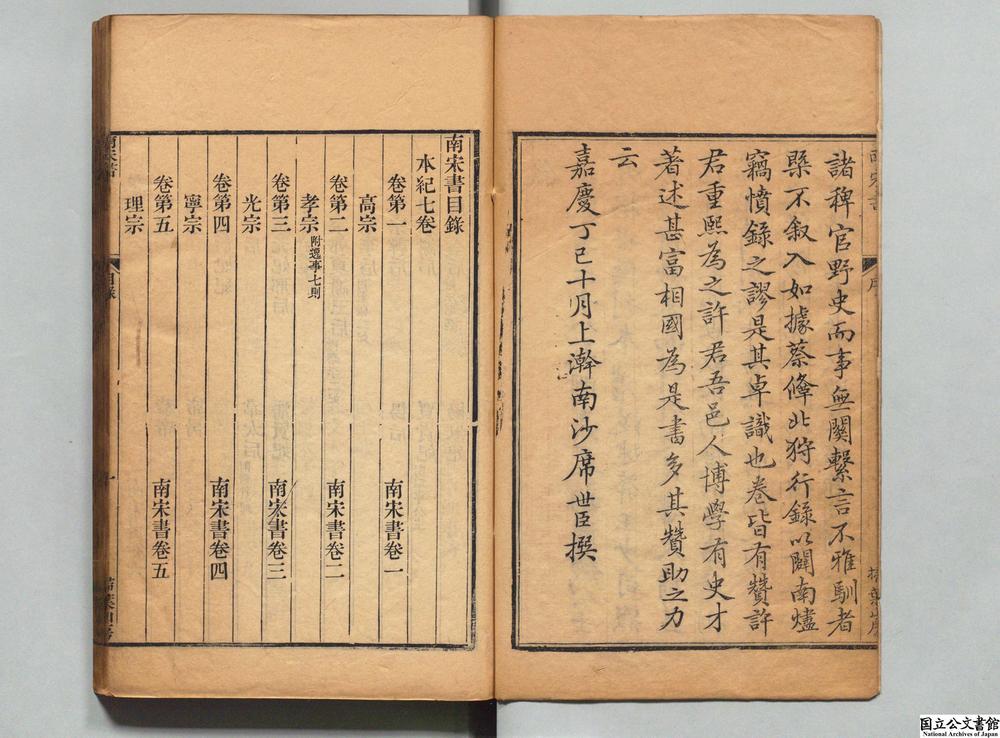 諸稗官野史而事無關繫言不雅馴者
槩不叙入如據蔡絛北狩行錄以闢南燼
竊憤錄之謬是其卓識也卷皆有贊許
君重熙為之許君吾邑人博學有史才
著述甚富相國為是書多其贊助之力
云
嘉慶丁巳十月上澣南沙席世臣撰
南宋書目錄
本紀七卷
卷第一 南宋書卷一
高宗
卷第二 南宋書卷二
孝宗 附遺事七則
卷第三 南宋書卷三
光宗
卷第四 南宋書卷四
寧宗
卷第五 南宋書卷五
理宗
国立公文書館
National Archives of Japan